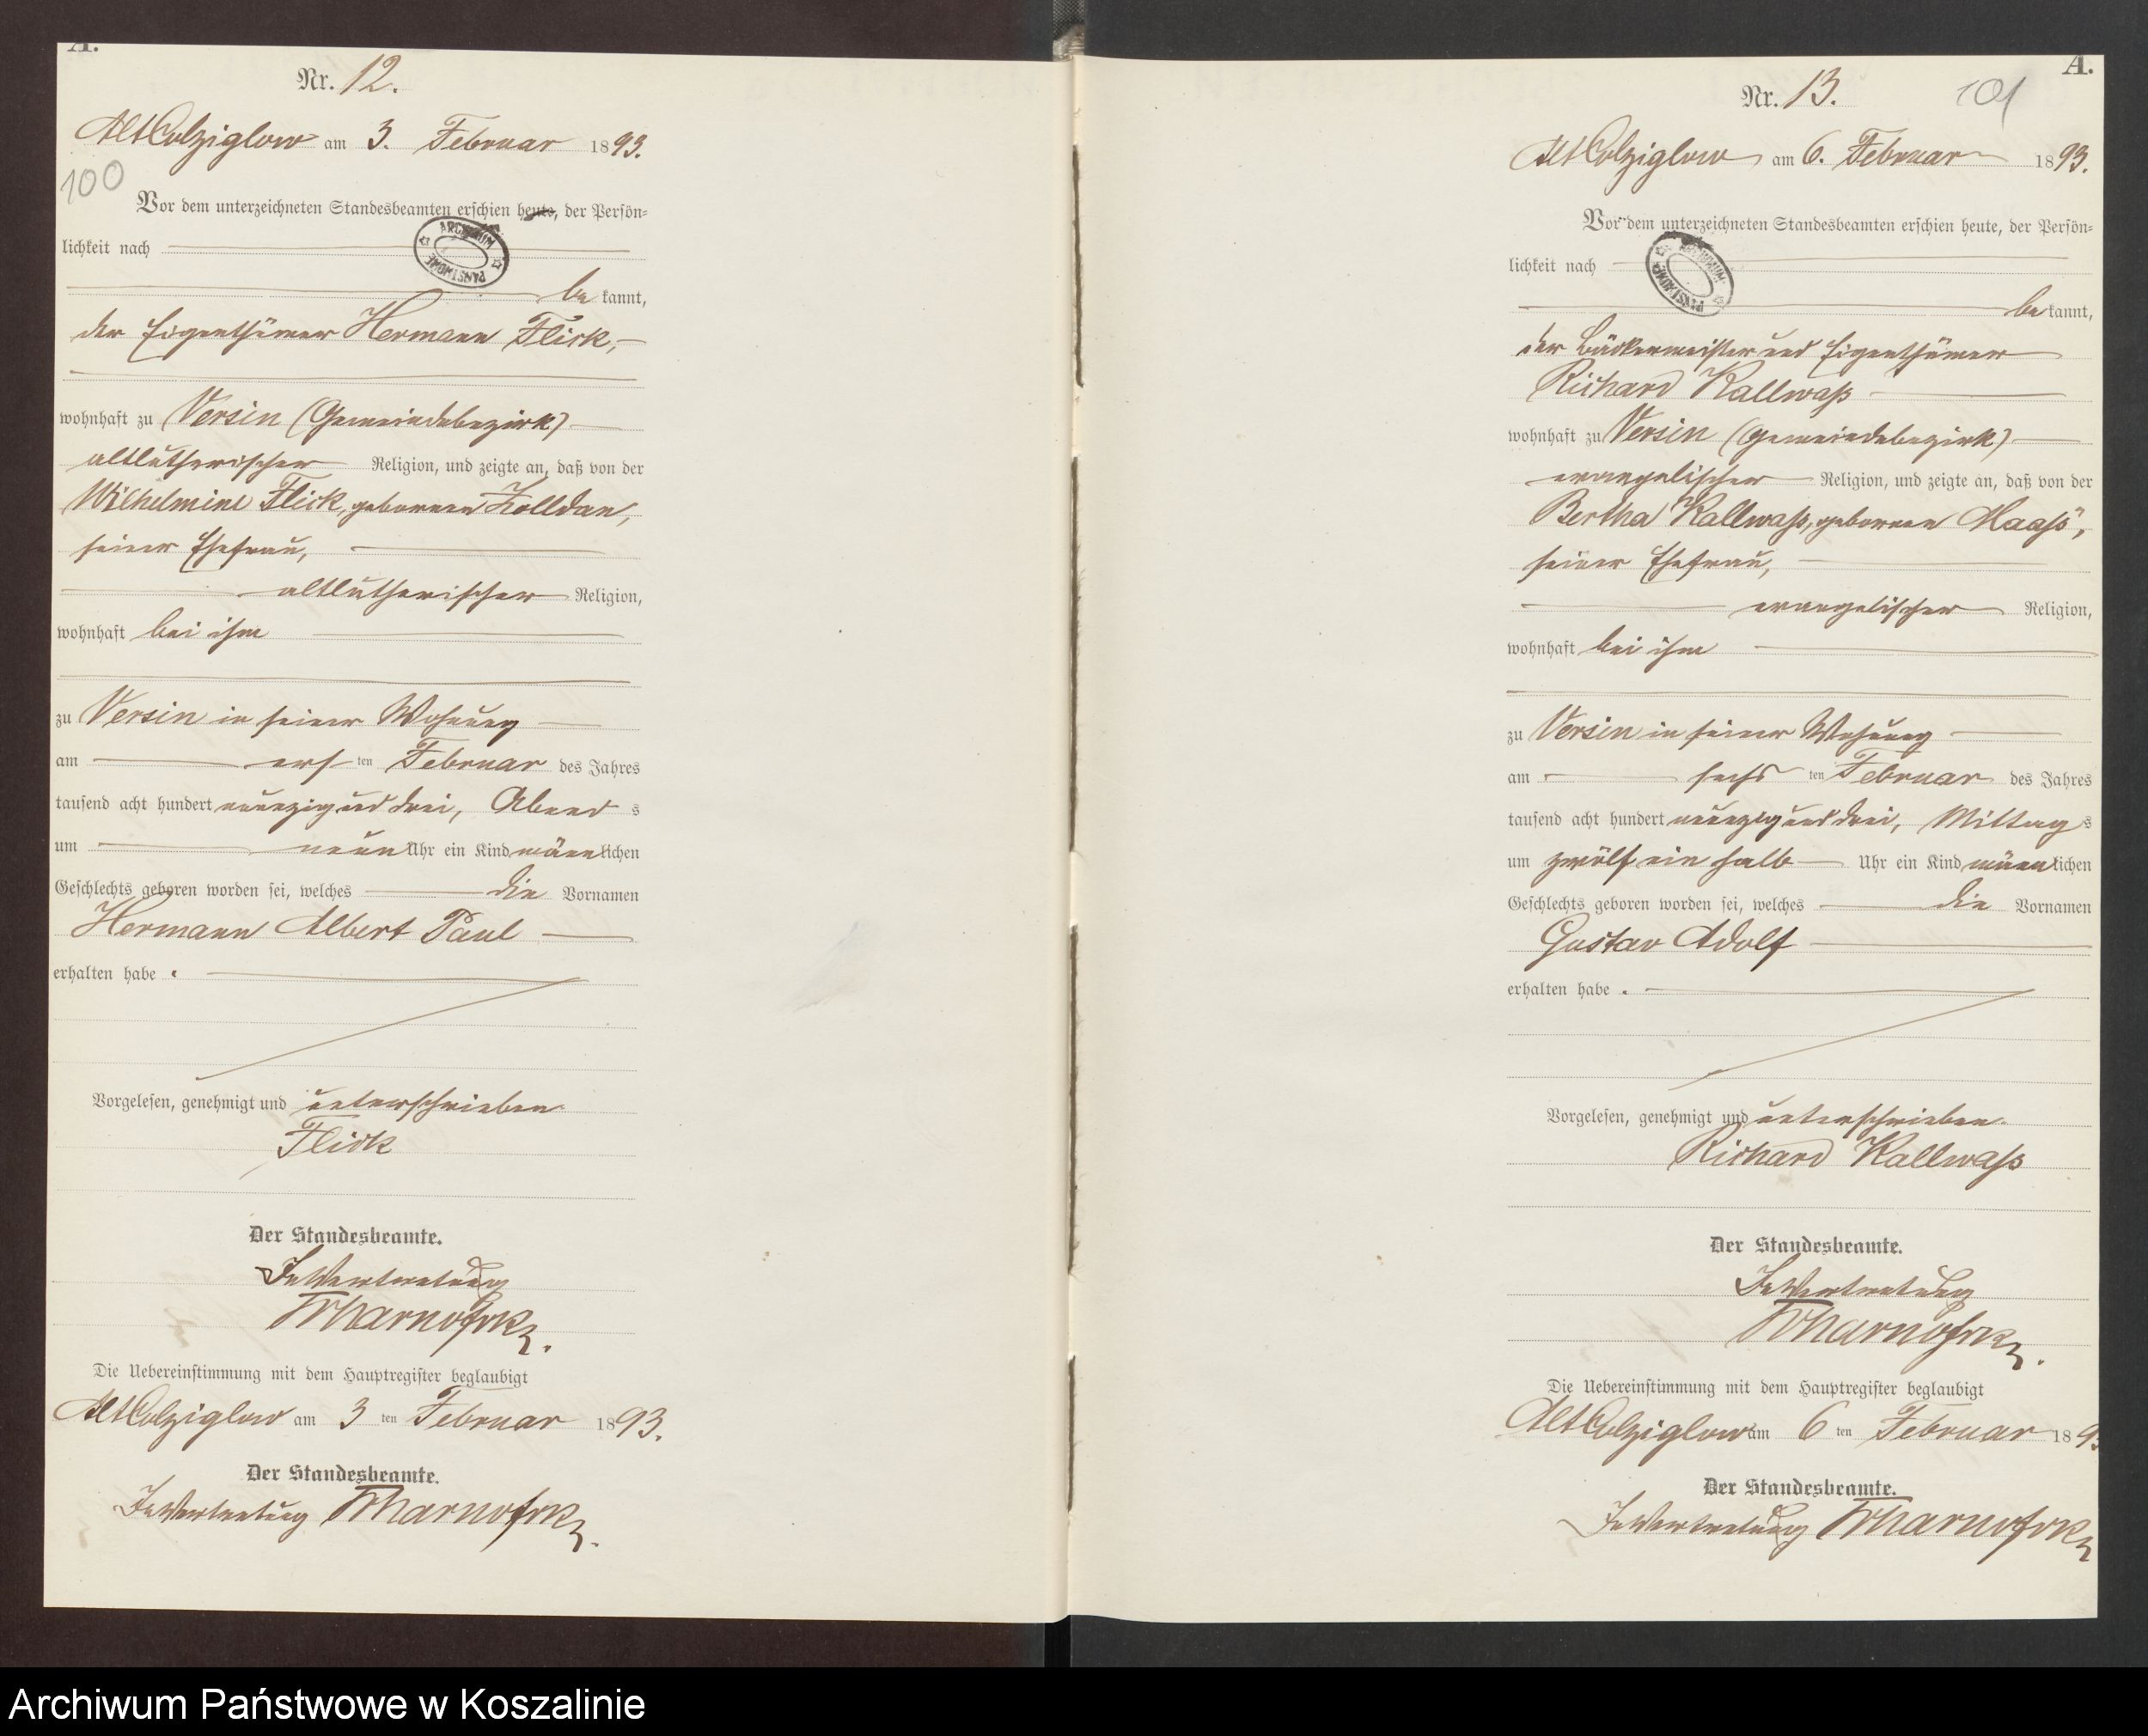 A.
Nr. 12.
Alt Colziglow am 3. Februar 1893.
100
Vor dem unterzeichneten Standesbeamten erschien heute, der Persön-
lichkeit nach
ARCHIWUM PAŃSTWOWE
be kannt,
der Eigenthümer Hermann Flick,
wohnhaft zu Versin (Gemeindebezirk)
altlutherischer Religion, und zeigte an, daß von der
Wilhelmine Flick, geborenen Zolldan,
seiner Ehefrau,
altlutherischer Religion,
wohnhaft bei ihm
zu Versin in seiner Wohnung
am ersten Februar des Jahres
tausend acht hundert neunzig und drei, Abends
um neun Uhr ein Kind männlichen
Geschlechts geboren worden sei, welches die Vornamen
Hermann Albert Paul
erhalten habe.
Vorgelesen, genehmigt und unterschrieben
Flick
Der Standesbeamte.
In Vertretung
Die Uebereinstimmung mit dem Hauptregister beglaubigt
Alt Colziglow am 3 ten Februar 1893.
Der Standesbeamte.
In Vertretung
A.
Nr. 13.
101
Alt Colziglow am 6. Februar 1893.
Vor dem unterzeichneten Standesbeamten erschien heute, der Persön-
lichkeit nach
ARCHIWUM PAŃSTWOWE
be kannt,
der Bäckermeister und Eigenthümer
Richard Kallwaß
wohnhaft zu Versin (Gemeindebezirk)
evangelischer Religion, und zeigte an, daß von der
Bertha Kallwaß, geborenen Maaß,
seiner Ehefrau,
evangelischer Religion,
wohnhaft bei ihm
zu Versin in seiner Wohnung
am sechsten Februar des Jahres
tausend acht hundert neunzig und drei, Mittags
um zwölf ein halb Uhr ein Kind männlichen
Geschlechts geboren worden sei, welches die Vornamen
Gustav Adolf
erhalten habe.
Vorgelesen, genehmigt und unterschrieben.
Richard Kallwaß
Der Standesbeamte.
In Vertretung
Die Uebereinstimmung mit dem Hauptregister beglaubigt
Alt Colziglow am 6 ten Februar 189
Der Standesbeamte.
In Vertretung
Archiwum Państwowe w Koszalinie